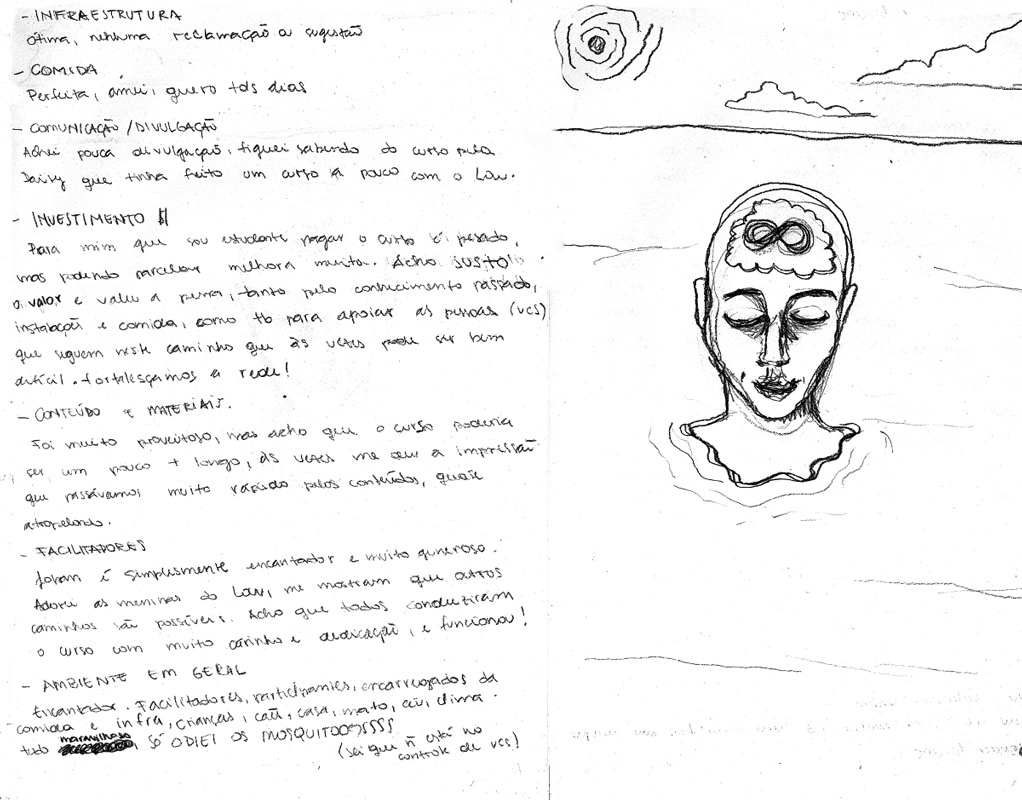 - INFRAESTRUTURA
Ótima, nenhuma reclamação ou sugestão
- COMIDA
Perfeita, amei, quero tds dias
- COMUNICAÇÃO / DIVULGAÇÃO
Achei pouca divulgação, fiquei sabendo do curso pela
Daisy que tinha feito um curso a pouco com o Low.
- INVESTIMENTO $
Para mim que sou estudante pagar o curso é pesado,
mas podendo parcelar melhora muito. Acho JUSTO
o valor e valeu a pena, tanto pelo conhecimento passado,
instalação e comida, como tb para apoiar as pessoas (vcs)
que seguem neste caminho que às vezes pode ser bem
difícil. Fortalesçamos a rede!
- CONTEÚDO e MATERIAIS.
Foi muito proveitoso, mas acho que o curso poderia
ser um pouco + longo, às vezes me deu a impressão
que passávamos muito rápido pelos conteúdos, quase
atropelando.
- FACILITADORES
é simplesmente encantador e muito generoso.
Adorei as meninas do Low, me mostram que outros
caminhos são possíveis. Acho que todos conduziram
o curso com muito carinho e dedicação, e funcionou!
- AMBIENTE EM GERAL
Encantador. Facilitadores, participantes, encarregados da
comida e infra, crianças, casa, mato, céu, clima.
tudo maravilhoso SÓ ODIEI OS MOSQUITOOOSSSSS
(sei que ñ está no
controle de vcs)